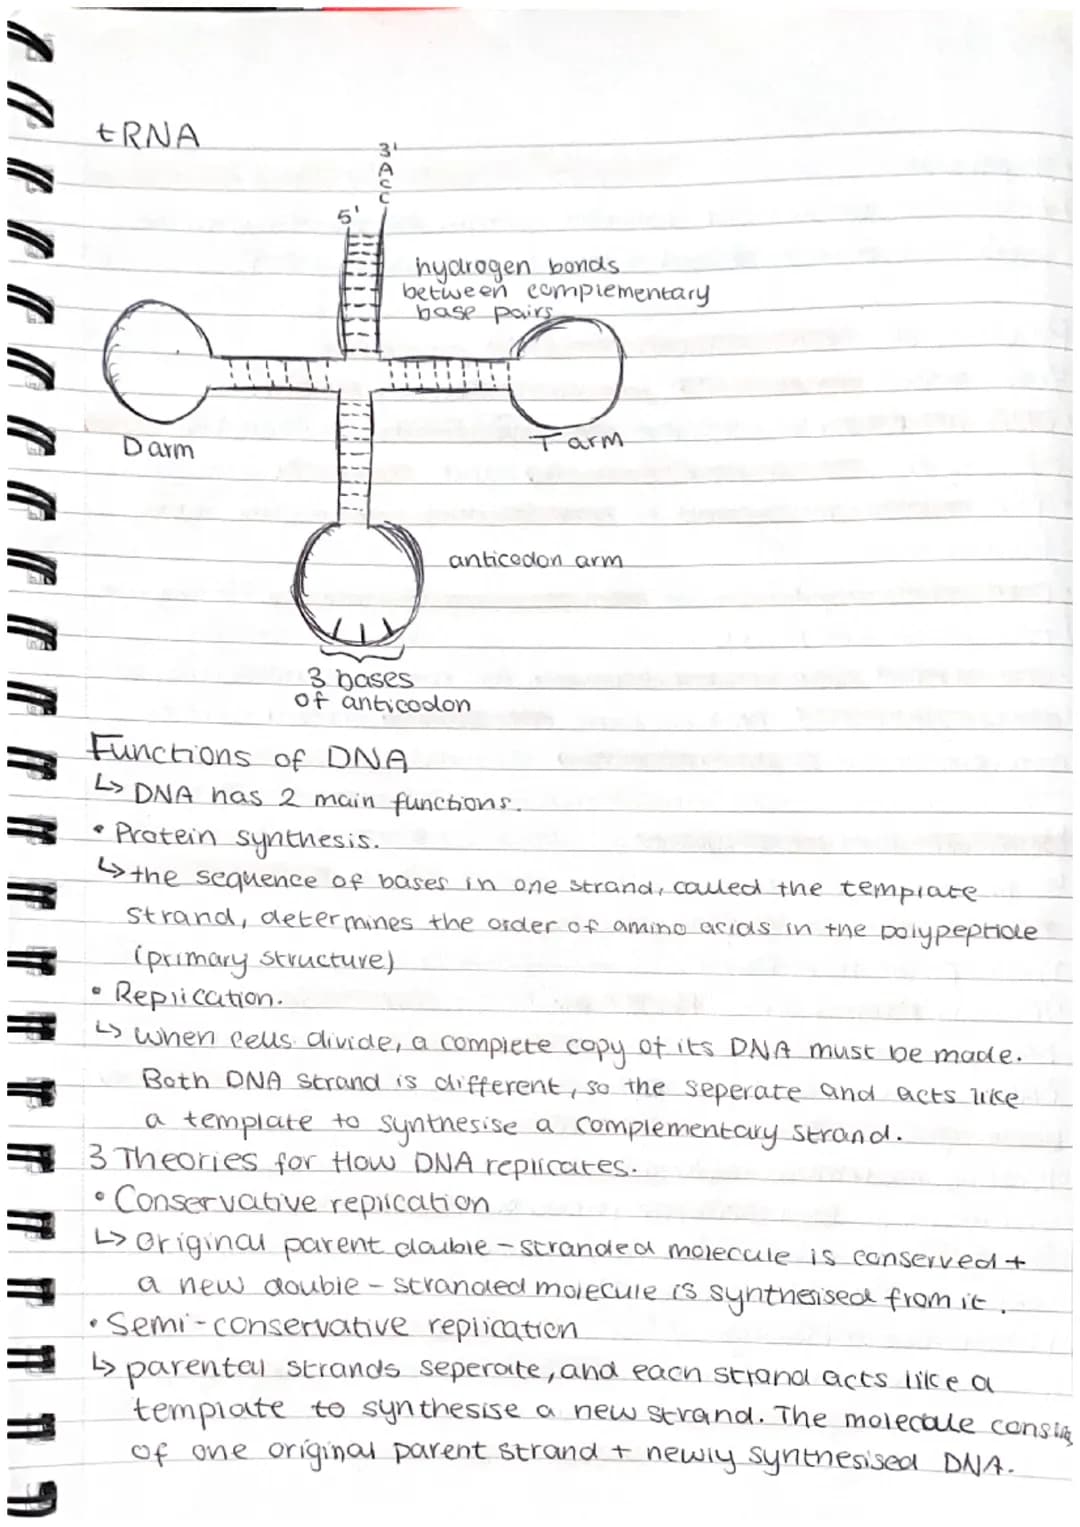 tRNA
3'
A
C
C
5'
hydrogen bonds
between complementary
base pairs
D arm
T arm
anticodon arm
3 bases
of anticodon
Functions of DNA
↳ DNA has 2 main functions.
• Protein synthesis.
↳ the sequence of bases in one strand, called the template
strand, determines the order of amino acids in the polypeptide
(primary structure)
• Replication.
↳ when cells divide, a complete copy of its DNA must be made.
Both DNA strand is different, so the seperate and acts like
a template to synthesise a complementary strand.
3 Theories for How DNA replicates.
• Conservative replication
↳ original parent double-stranded molecule is conserved +
a new double-stranded molecule is synthesised from it.
• Semi-conservative replication
↳ parental strands seperate, and each strand acts like a
template to synthesise a new strand. The molecule
of one original parent strand + newly synthesised DNA.